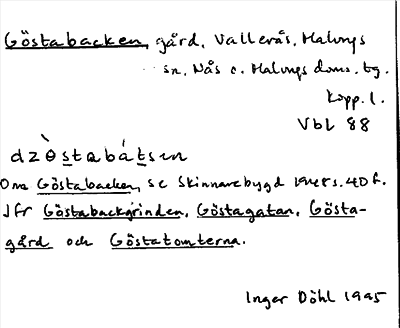 Göstabacken, gård, Vallerås, Malungs
sn, Nås o. Malungs doms. tg.
Kopp. l.
Vbl 88
dzòstabátsɪn
Om Göstabacken, se Skinnarebygd 1948 s. 40 f.
Jfr Göstabackgrinden, Göstagatan, Gösta-
gård och Göstatomterna.
Inger Döhl 1995